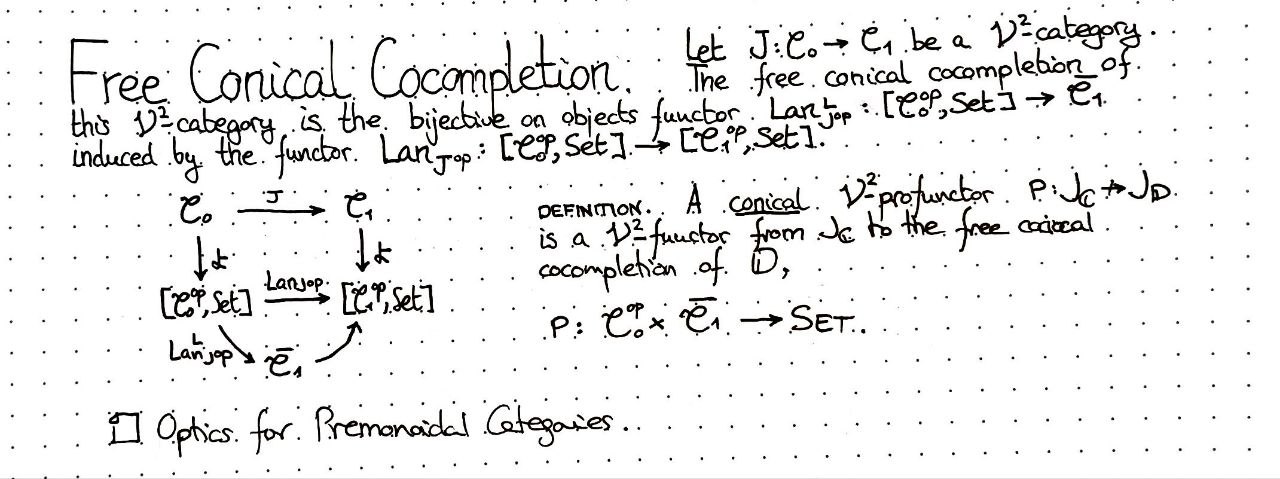 Free Conical Cocompletion. Let J: C₀ → C₁ be a V²-category.
The free conical cocompletion of
this V²-category is the bijective on objects functor Lanᴸ_Jop : [C₀ᵒᵖ, Set] → C̄₁
induced by the functor Lan_Jop : [C₀ᵒᵖ, Set] → [C₁ᵒᵖ, Set].
C₀ J → C₁
↓ よ ↓ よ
[C₀ᵒᵖ, Set] Lan_Jop → [C₁ᵒᵖ, Set]
Lanᴸ_Jop C̄₁
DEFINITION. A conical V²-profunctor P: J_C ⇸ J_D
is a V²-functor from J_C to the free conical
cocompletion of D,
P: C₀ᵒᵖ × C̄₁ → SET.
□ Optics for Premonoidal Categories.